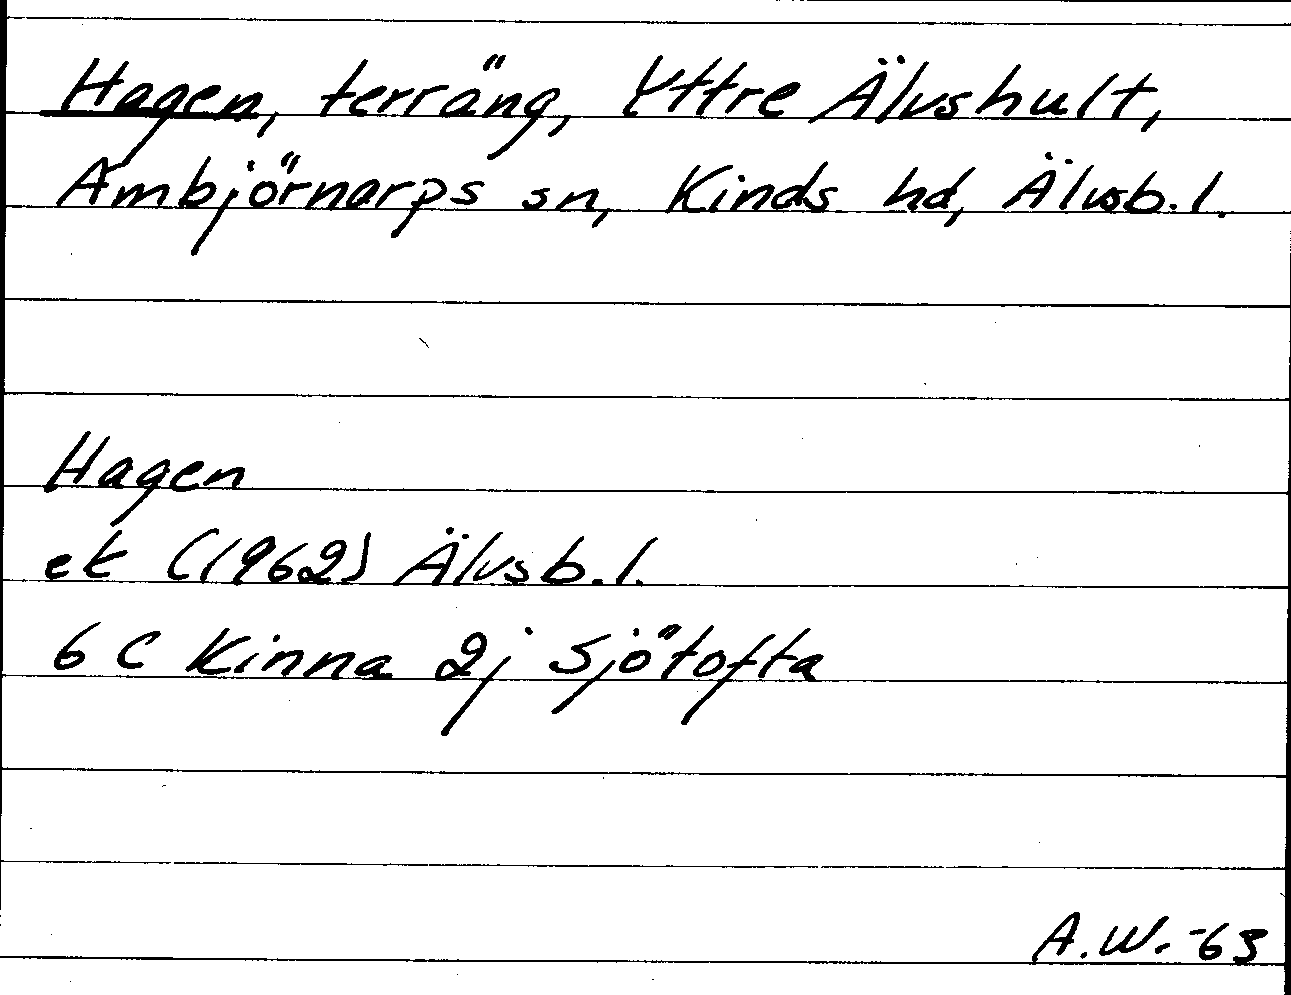 Hagen, terräng, Yttre Älvshult,
Ambjörnarps sn, Kinds hd, Älvsb. l.
Hagen
ek (1962) Älvsb. l.
6 C Kinna 2j Sjötofta
A.W.-63